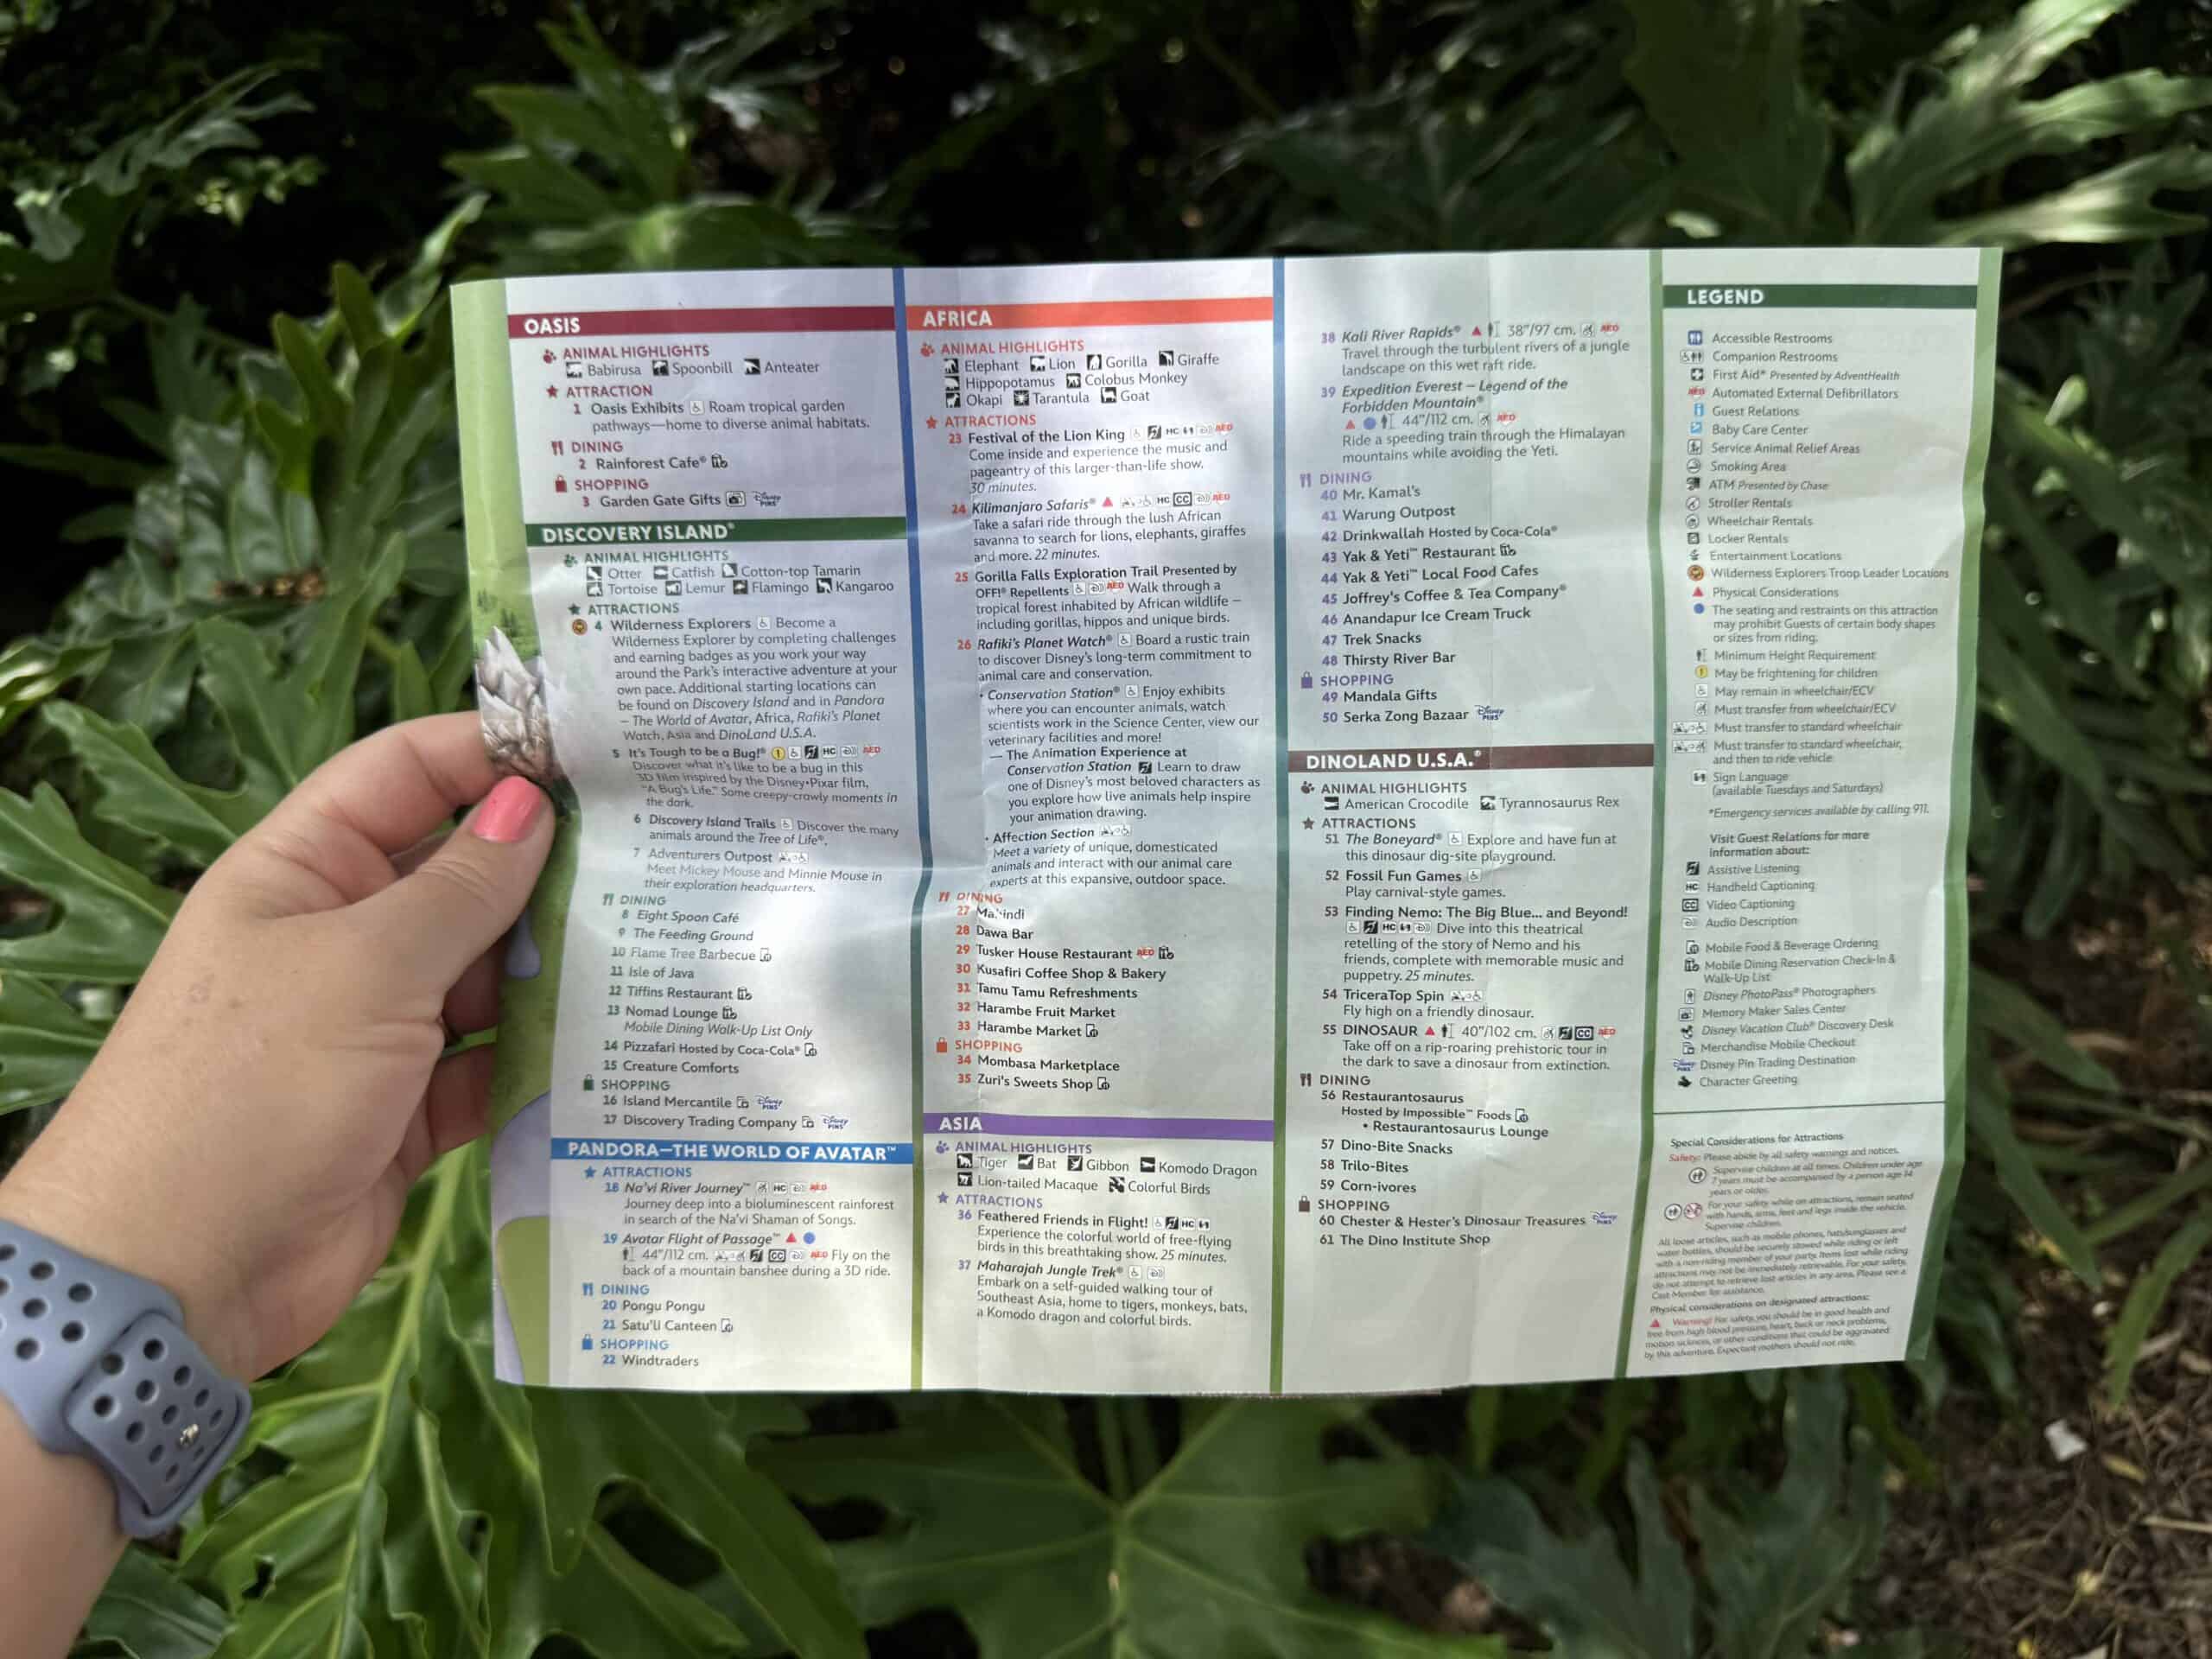 OASIS
ANIMAL HIGHLIGHTS
Babirusa Spoonbill Anteater
ATTRACTION
1 Oasis Exhibits Roam tropical garden
pathways—home to diverse animal habitats.
DINING
2 Rainforest Cafe®
SHOPPING
3 Garden Gate Gifts Disney PINS
DISCOVERY ISLAND®
ANIMAL HIGHLIGHTS
Otter Catfish Cotton-top Tamarin
Tortoise Lemur Flamingo Kangaroo
ATTRACTIONS
4 Wilderness Explorers Become a
Wilderness Explorer by completing challenges
and earning badges as you work your way
around the Park's interactive adventure at your
own pace. Additional starting locations can
be found on Discovery Island and in Pandora
– The World of Avatar, Africa, Rafiki's Planet
Watch, Asia and DinoLand U.S.A.
5 It's Tough to be a Bug!® HC AED
Discover what it's like to be a bug in this
3D film inspired by the Disney•Pixar film,
"A Bug's Life." Some creepy-crawly moments in
the dark.
6 Discovery Island Trails Discover the many
animals around the Tree of Life®.
7 Adventurers Outpost
Meet Mickey Mouse and Minnie Mouse in
their exploration headquarters.
DINING
8 Eight Spoon Café
9 The Feeding Ground
10 Flame Tree Barbecue
11 Isle of Java
12 Tiffins Restaurant
13 Nomad Lounge
Mobile Dining Walk-Up List Only
14 Pizzafari Hosted by Coca-Cola®
15 Creature Comforts
SHOPPING
16 Island Mercantile Disney PINS
17 Discovery Trading Company Disney PINS
PANDORA—THE WORLD OF AVATAR™
ATTRACTIONS
18 Na'vi River Journey™ HC AED
Journey deep into a bioluminescent rainforest
in search of the Na'vi Shaman of Songs.
19 Avatar Flight of Passage™
44"/112 cm. CC AED Fly on the
back of a mountain banshee during a 3D ride.
DINING
20 Pongu Pongu
21 Satu'li Canteen
SHOPPING
22 Windtraders
AFRICA
ANIMAL HIGHLIGHTS
Elephant Lion Gorilla Giraffe
Hippopotamus Colobus Monkey
Okapi Tarantula Goat
ATTRACTIONS
23 Festival of the Lion King HC AED
Come inside and experience the music and
pageantry of this larger-than-life show.
30 minutes.
24 Kilimanjaro Safaris® HC CC AED
Take a safari ride through the lush African
savanna to search for lions, elephants, giraffes
and more. 22 minutes.
25 Gorilla Falls Exploration Trail Presented by
OFF!® Repellents AED Walk through a
tropical forest inhabited by African wildlife –
including gorillas, hippos and unique birds.
26 Rafiki's Planet Watch® Board a rustic train
to discover Disney's long-term commitment to
animal care and conservation.
• Conservation Station® Enjoy exhibits
where you can encounter animals, watch
scientists work in the Science Center, view our
veterinary facilities and more!
— The Animation Experience at
Conservation Station Learn to draw
one of Disney's most beloved characters as
you explore how live animals help inspire
your animation drawing.
• Affection Section
Meet a variety of unique, domesticated
animals and interact with our animal care
experts at this expansive, outdoor space.
DINING
27
28 Dawa Bar
29 Tusker House Restaurant AED
30 Kusafiri Coffee Shop & Bakery
31 Tamu Tamu Refreshments
32 Harambe Fruit Market
33 Harambe Market
SHOPPING
34 Mombasa Marketplace
35 Zuri's Sweets Shop
ASIA
ANIMAL HIGHLIGHTS
Tiger Bat Gibbon Komodo Dragon
Lion-tailed Macaque Colorful Birds
ATTRACTIONS
36 Feathered Friends in Flight! HC
Experience the colorful world of free-flying
birds in this breathtaking show. 25 minutes.
37 Maharajah Jungle Trek®
Embark on a self-guided walking tour of
Southeast Asia, home to tigers, monkeys, bats,
a Komodo dragon and colorful birds.
38 Kali River Rapids® 38"/97 cm. AED
Travel through the turbulent rivers of a jungle
landscape on this wet raft ride.
39 Expedition Everest – Legend of the
Forbidden Mountain®
44"/112 cm. AED
Ride a speeding train through the Himalayan
mountains while avoiding the Yeti.
DINING
40 Mr. Kamal's
41 Warung Outpost
42 Drinkwallah Hosted by Coca-Cola®
43 Yak & Yeti™ Restaurant
44 Yak & Yeti™ Local Food Cafes
45 Joffrey's Coffee & Tea Company®
46 Anandapur Ice Cream Truck
47 Trek Snacks
48 Thirsty River Bar
SHOPPING
49 Mandala Gifts
50 Serka Zong Bazaar Disney PINS
DINOLAND U.S.A.®
ANIMAL HIGHLIGHTS
American Crocodile Tyrannosaurus Rex
ATTRACTIONS
51 The Boneyard® Explore and have fun at
this dinosaur dig-site playground.
52 Fossil Fun Games
Play carnival-style games.
53 Finding Nemo: The Big Blue... and Beyond!
HC Dive into this theatrical
retelling of the story of Nemo and his
friends, complete with memorable music and
puppetry. 25 minutes.
54 TriceraTop Spin
Fly high on a friendly dinosaur.
55 DINOSAUR 40"/102 cm. CC AED
Take off on a rip-roaring prehistoric tour in
the dark to save a dinosaur from extinction.
DINING
56 Restaurantosaurus
Hosted by Impossible™ Foods
• Restaurantosaurus Lounge
57 Dino-Bite Snacks
58 Trilo-Bites
59 Corn-ivores
SHOPPING
60 Chester & Hester's Dinosaur Treasures Disney PINS
61 The Dino Institute Shop
LEGEND
Accessible Restrooms
Companion Restrooms
First Aid® Presented by AdventHealth
AED Automated External Defibrillators
Guest Relations
Baby Care Center
Service Animal Relief Areas
Smoking Area
ATM Presented by Chase
Stroller Rentals
Wheelchair Rentals
Locker Rentals
Entertainment Locations
Wilderness Explorers Troop Leader Locations
Physical Considerations
The seating and restraints on this attraction
may prohibit Guests of certain body shapes
or sizes from riding.
Minimum Height Requirement
May be frightening for children
May remain in wheelchair/ECV
Must transfer from wheelchair/ECV
Must transfer to standard wheelchair
Must transfer to standard wheelchair,
and then to ride vehicle
Sign Language
(available Tuesdays and Saturdays)
*Emergency services available by calling 911.
Visit Guest Relations for more
information about:
Assistive Listening
HC Handheld Captioning
CC Video Captioning
Audio Description
Mobile Food & Beverage Ordering
Mobile Dining Reservation Check-In &
Walk-Up List
Disney PhotoPass® Photographers
Memory Maker Sales Center
Disney Vacation Club® Discovery Desk
Merchandise Mobile Checkout
Disney PINS Disney Pin Trading Destination
Character Greeting
Special Considerations for Attractions
Safety: Please abide by all safety warnings and notices.
Supervise children at all times. Children under age
7 years must be accompanied by a person age 14
years or older.
For your safety while on attractions, remain seated
with hands, arms, feet and legs inside the vehicle.
Supervise children.
All loose articles, such as mobile phones, hats/sunglasses and
water bottles, should be securely stowed while riding or left
with a non-riding member of your party. Items lost while riding
attractions may not be immediately retrievable. For your safety,
do not attempt to retrieve lost articles in any area. Please see a
Cast Member for assistance.
Physical considerations on designated attractions:
Warning! For safety, you should be in good health and
free from high blood pressure, heart, back or neck problems,
motion sickness, or other conditions that could be aggravated
by this adventure. Expectant mothers should not ride.